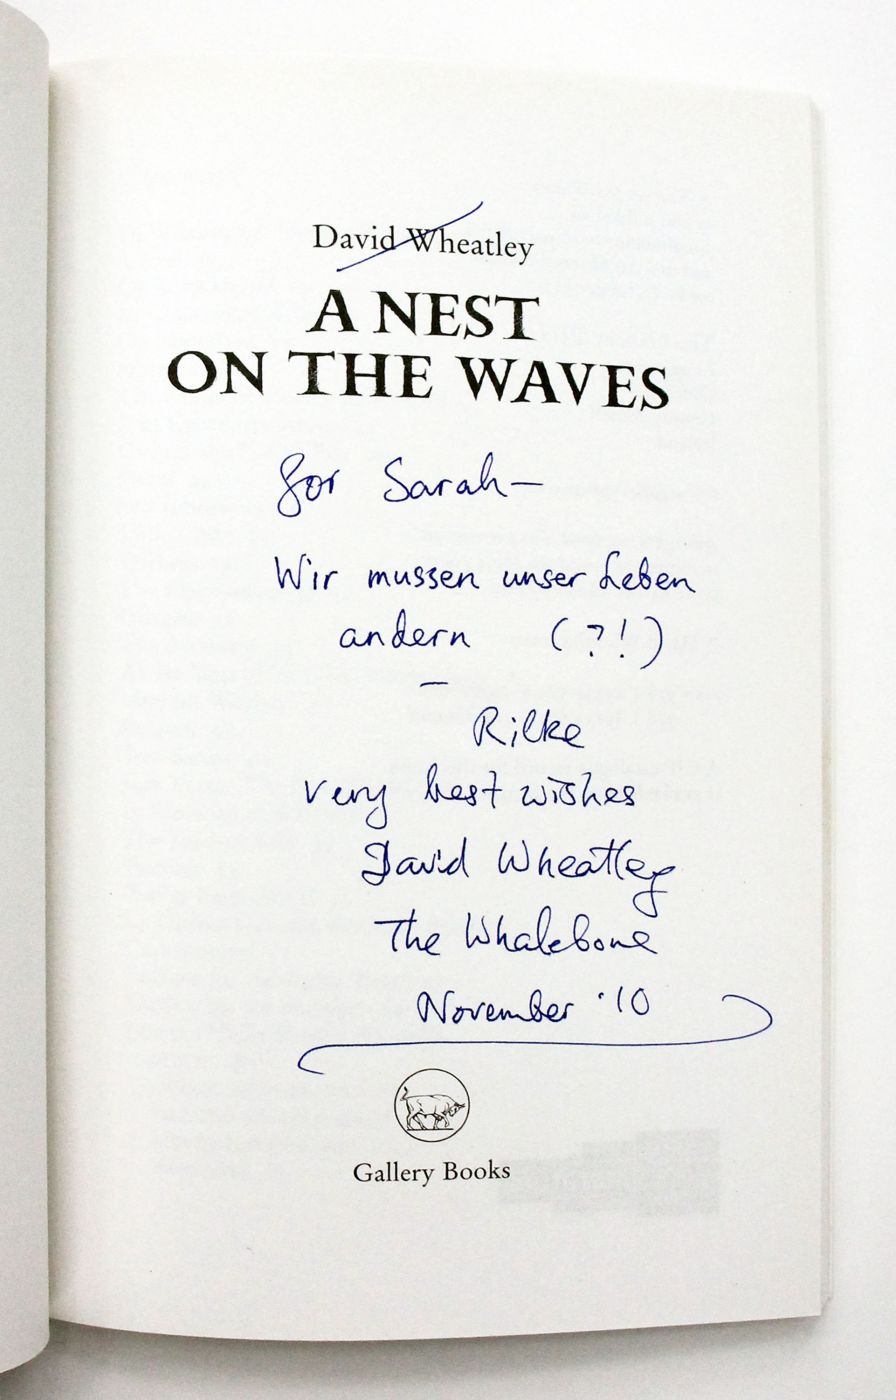 David Wheatley
A NEST
ON THE WAVES
for Sarah—
Wir mussen unser Leben
andern (?!)
—
Rilke
very best wishes
David Wheatley
The Whalebone
November '10
Gallery Books